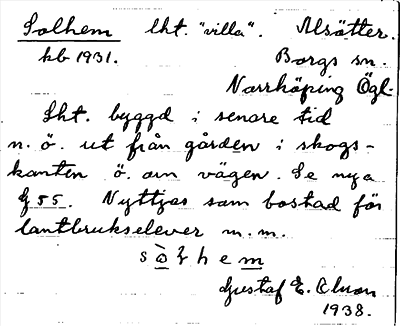 Solhem lht. "villa". Alsätter.
kb 1931. Borgs sn.
Norrköping Ögl.
Lht. byggd i senare tid
n. ö. ut från gården i skogs-
kanten ö. om vägen. Se nya
G 55. Nyttjas som bostad för
lantbrukselever m. m.
sòlhem
Gustaf E. Olson
1938.